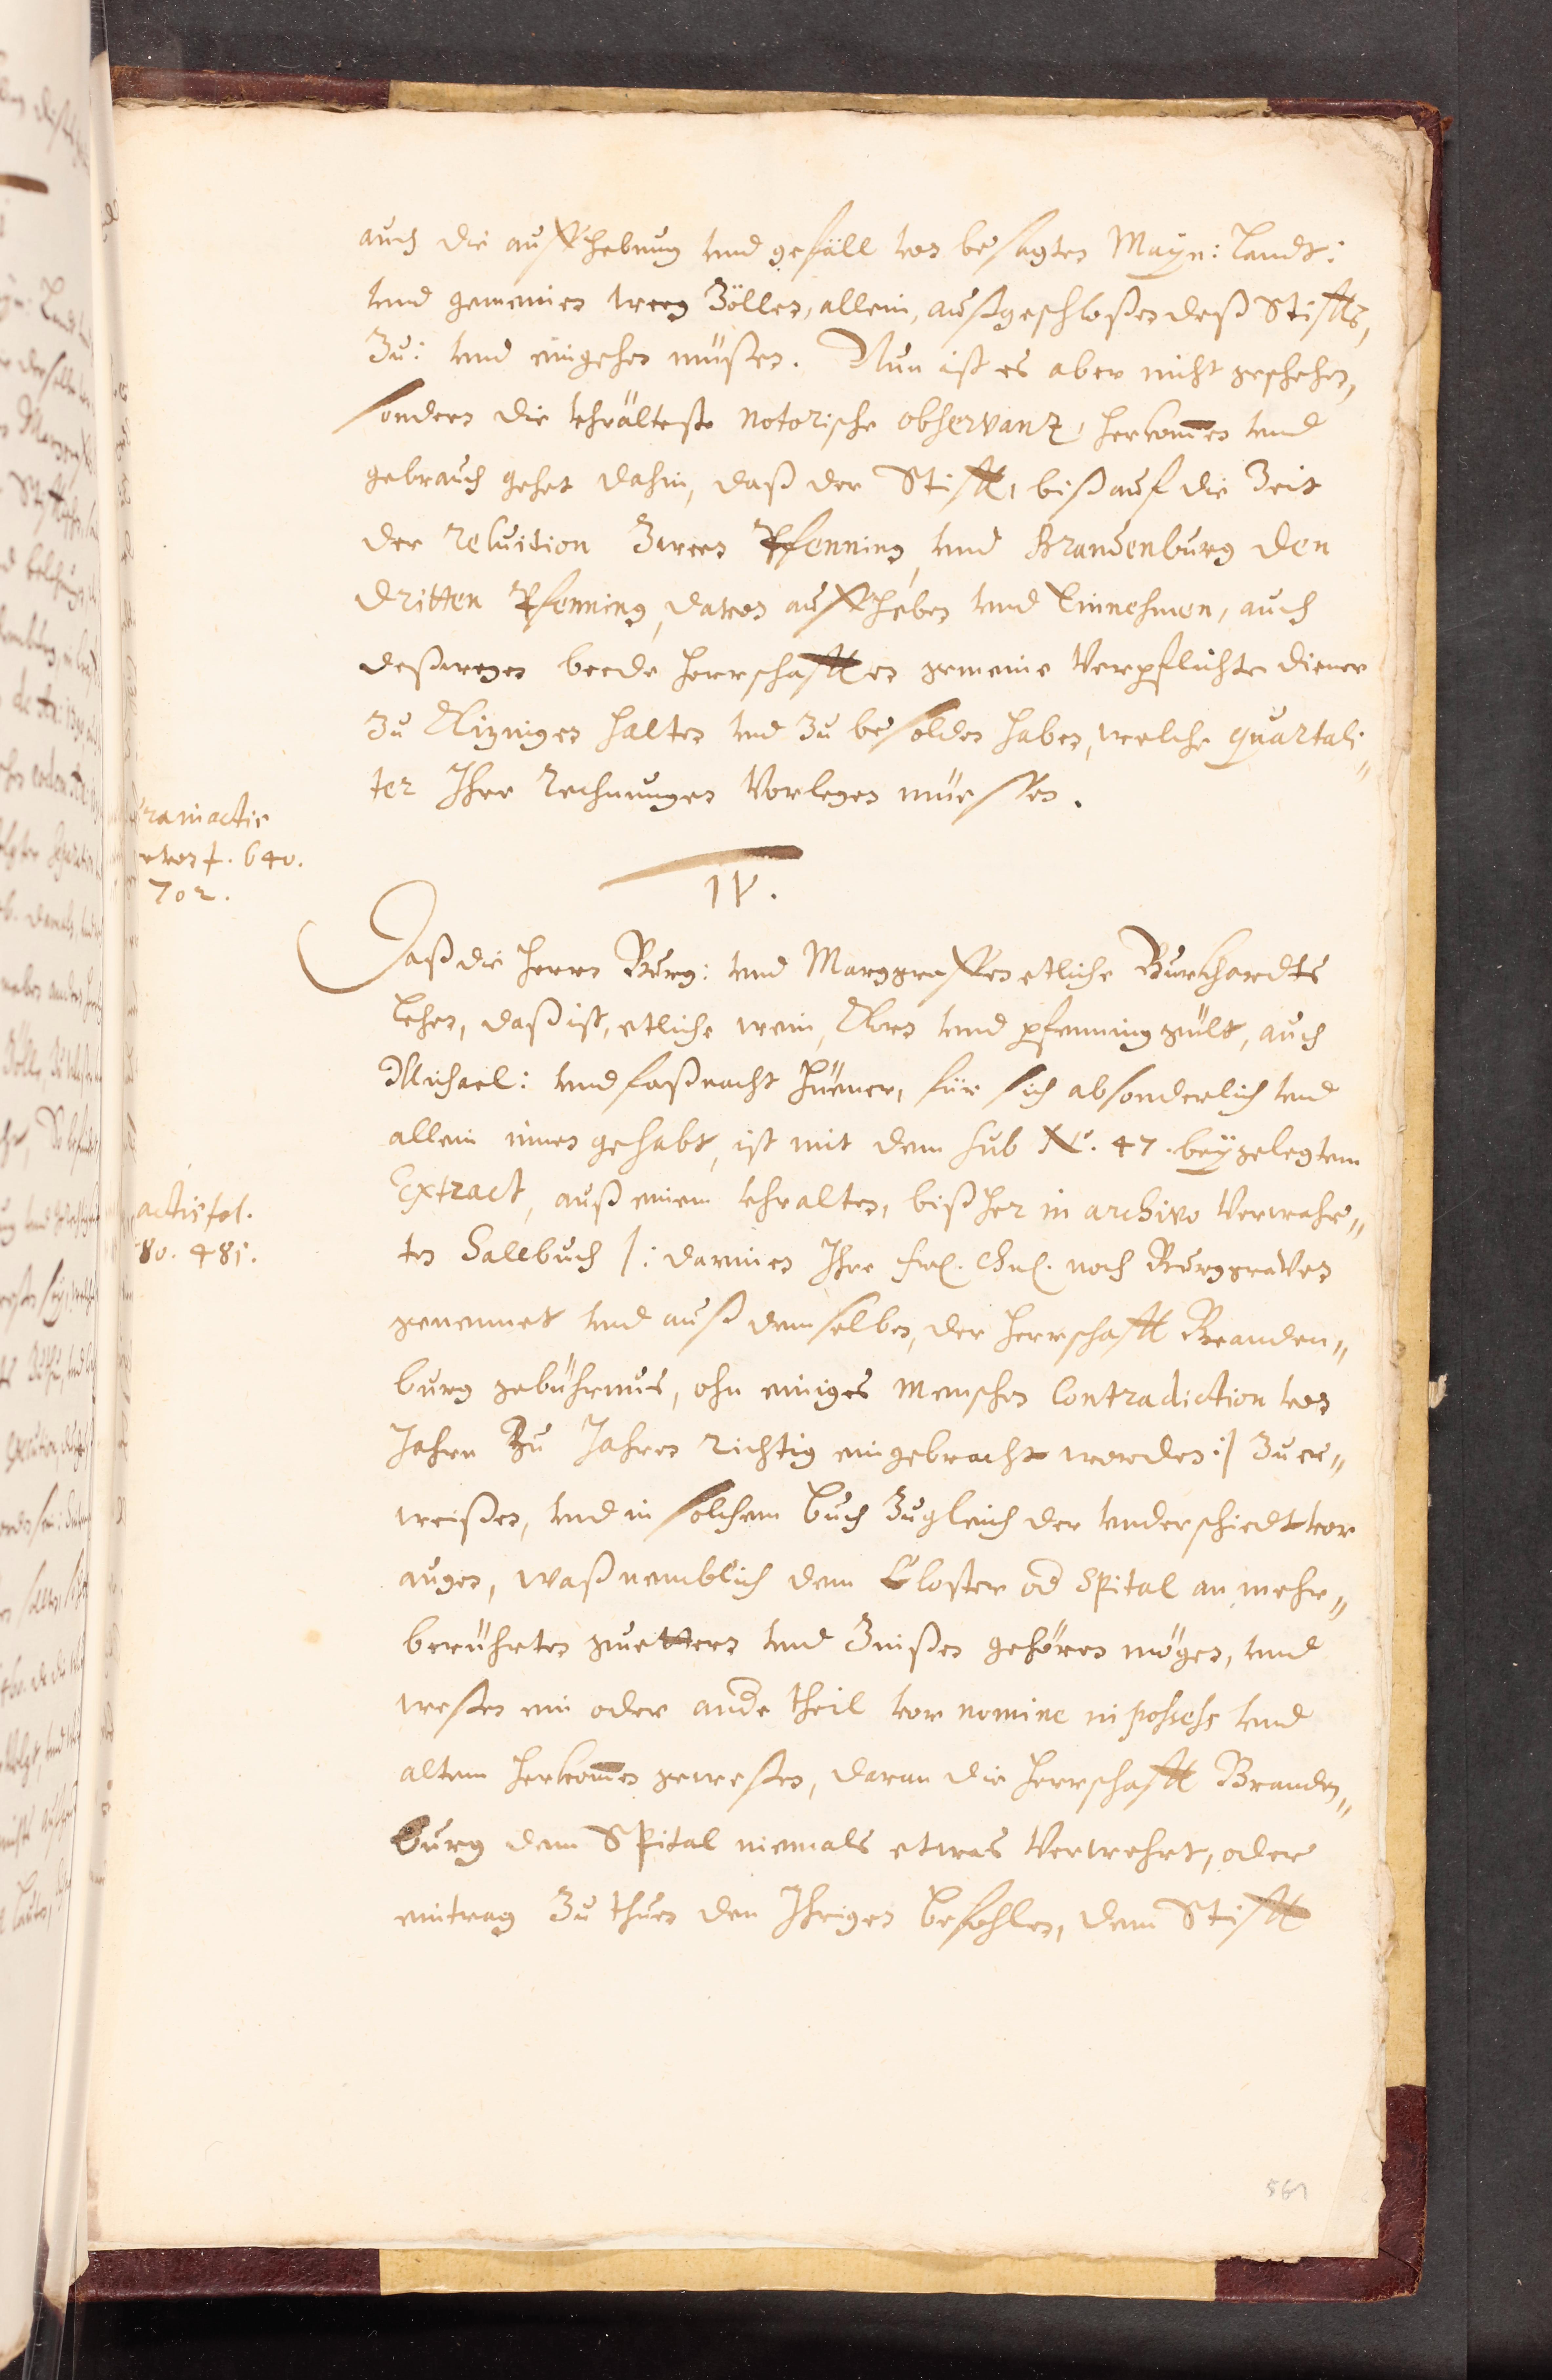 auch die auffhebung vnd gefäll von besagten Mayn: Landt:
vnd gemeinen weeg Zöllen, allein, außgeschloßen deß Stiffts,
Zu: vnd eingehen müßen. Nun ist es aber nicht geschehen,
sondern die vhrälteste notorische observanz, herkom̄en vnd
gebrauch gehet dahin, daß der Stifft, biß auf die Zeit
der reluition Zween Pfenning, vnd Brandenburg den
dritten Pfenning, dauon auffheben vnd Einnehmen, auch
deßwegen beede Herrschafften gemeine Verpflichte diener
Zu Kizingen halten vnd Zu besolden haben, welche quartali„
ter Ihre Rechnungen Vorlegen müessen.
f. 640.
702.
IV.
Daß die Herrn Burg: vnd Marggraffen etliche Burkhardts
Lehen, daß ist, etliche wein, Korn vnd pfenninggült, auch
Michael: vnd faßnacht Hüener, für sich absonderlich vnd
allein innen gehabt, ist mit dem sub No. 47. beygelegtem
Extract, auß einem vhralten, bißher in archivo Verwahr„
ten Sallbuch /: darinnen Ihre frl. Gnl. noch Burggraven
genennet vnd auß demselben, der Herrschafft Branden„
burg gebührnus, ohn einiges menschen Contradiction von
Jahrn Zu Jahren richtig eingebracht worden :/ Zu er„
weißen, vnd in solchem buch Zugleich der vnderschiedt vor
augen, waß nemblich dem Closter od Spital an mehr„
berührten güettern vnd Zinßen gehören mögen, vnd
weßen ein oder ande theil vor nomine in possess vnd
altem herkom̄en gewesen, daran die Herrschafft Branden„
burg dem Spital niemals etwas Verwehrt, oder
eintrag Zu thuen den Ihrigen befohlen, dem Stifft
actis fol.
80. 481.
561